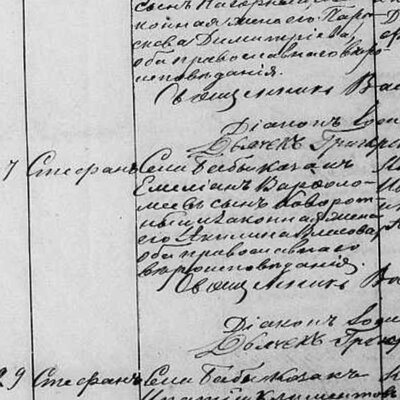 сынъ Нагорный и за
конная жена его Пара
скева Димитріева,
оба православнаго вѣро
исповѣданія.
Священникъ Ва
Діаконъ
Дьячекъ Григо
7 Стефанъ Села Бабы козакъ
Емеліанъ Варѳоло
меевъ сынъ Поворот
ный и законная жена
его Акилина Власова
оба православнаго
вѣроисповѣданія.
Священникъ Ва
Діаконъ
Дьячекъ Григор
29 Стефанъ Села Бабы козакъ
Климентов